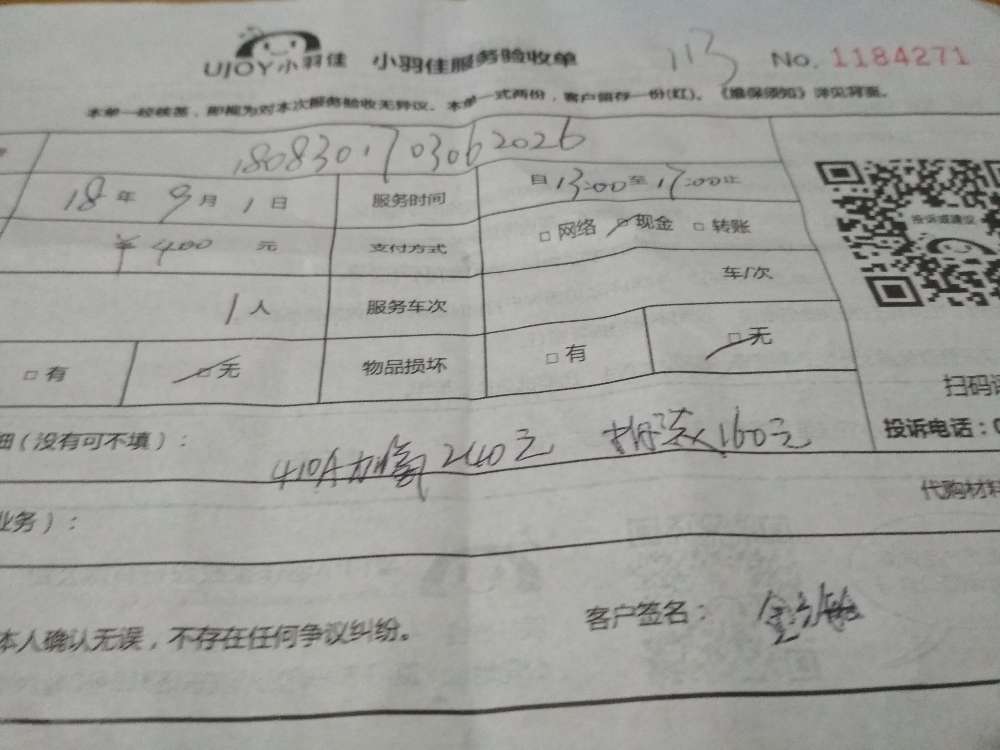 UJOY小羽佳 小羽佳服务验收单 113 No. 1184271
本单一经核签，即视为对本次服务验收无异议。本单一式两份，客户留存一份(红)。《维保须知》详见背面。
1808301703062026
18年9月1日 服务时间 自13:00至17:00止
￥400元 支付方式 □网络 □现金 □转账
投诉或建议
1人 服务车次 车/次
□有 □无 物品损坏 □有 □无
扫码
细（没有可不填）： 投诉电话：0
410A加氟240元 拆装160元
代购材料
业务）：
本人确认无误，不存在任何争议纠纷。 客户签名：